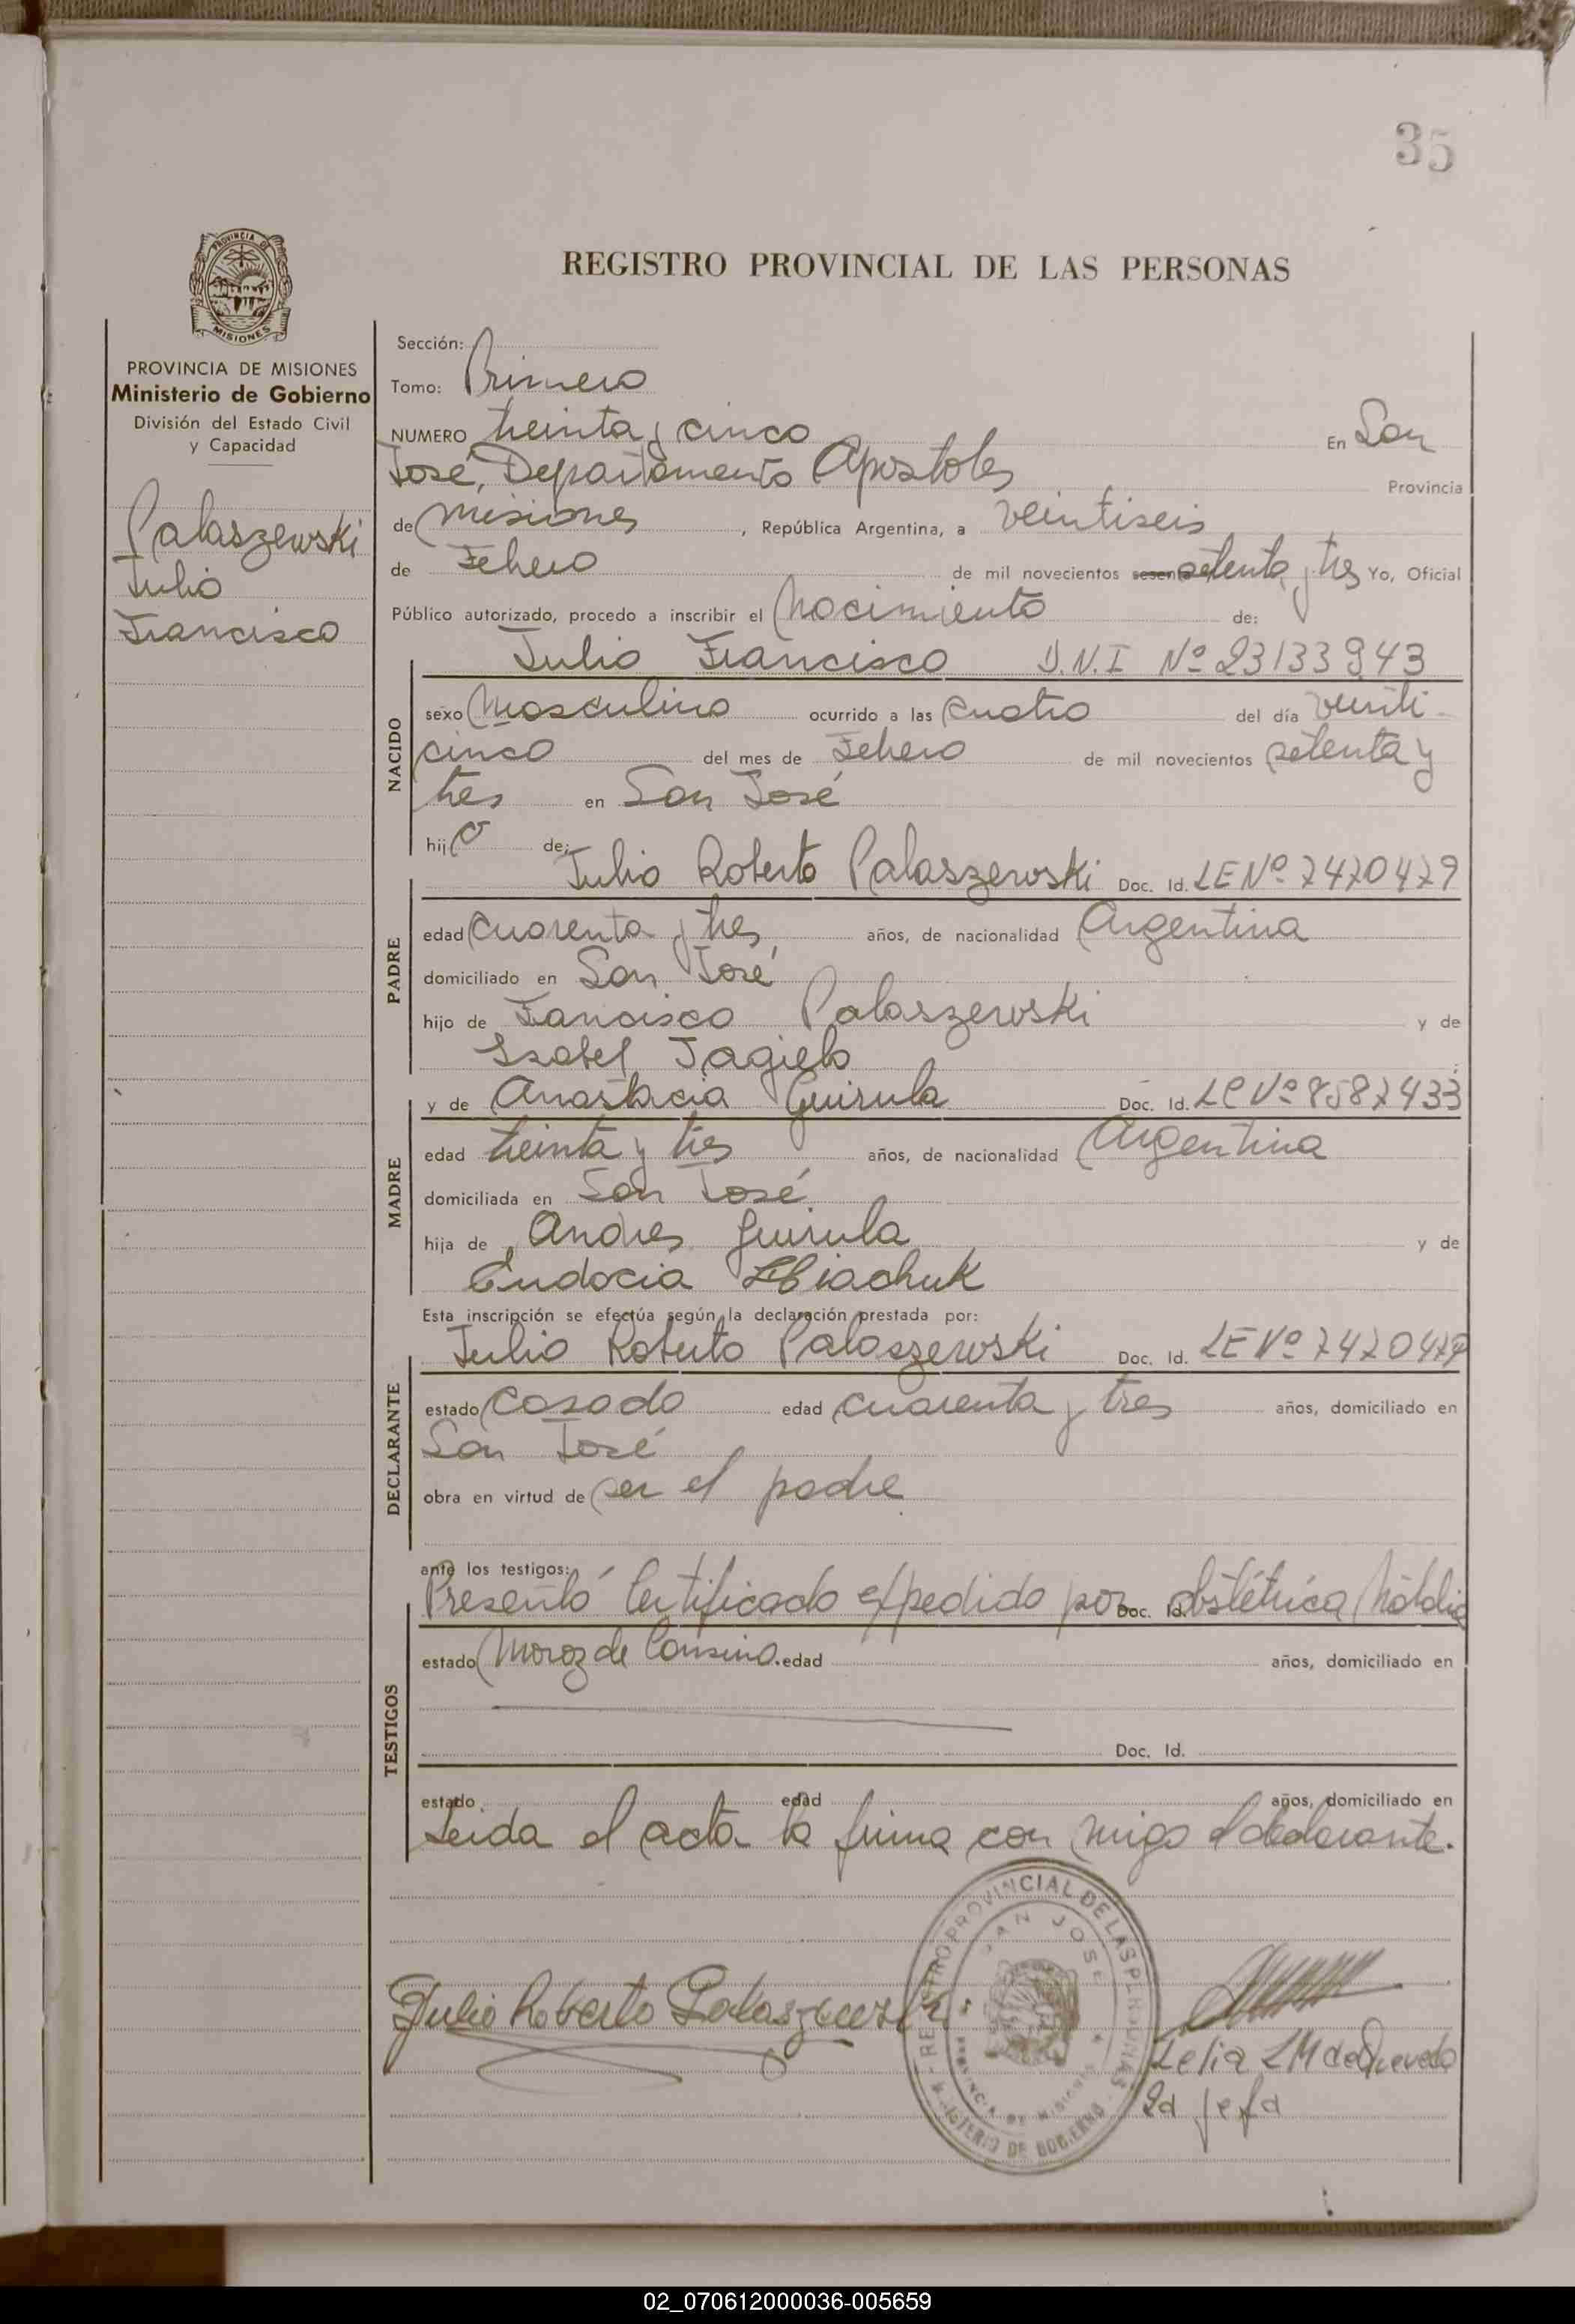 35
PROVINCIA DE
MISIONES
REGISTRO PROVINCIAL DE LAS PERSONAS
PROVINCIA DE MISIONES
Ministerio de Gobierno
División del Estado Civil
y Capacidad
Palaszewski
Julio
Francisco
Sección:
Tomo: Primero
NUMERO treinta y cinco En San
José, Departamento Apostoles Provincia
de Misiones, República Argentina, a veintiseis
de Febrero de mil novecientos sesenta setenta y tres Yo, Oficial
Público autorizado, procedo a inscribir el Nacimiento de:
NACIDO
Julio Francisco D.N.I Nº 23133943
sexo Masculino ocurrido a las cuatro del día veinti-
cinco del mes de Febrero de mil novecientos setenta y
tres en San José
hijo de:
PADRE
Julio Roberto Palaszewski Doc. Id. LE Nº 7470479
edad cuarenta y tres años, de nacionalidad Argentina
domiciliado en San José
hijo de Francisco Palaszewski y de
Isabel Jagielo
MADRE
y de Anastacia Guirula Doc. Id. LC Nº 8587433
edad treinta y tres años, de nacionalidad Argentina
domiciliada en San José
hija de Andres Guirula y de
Eudocia
Esta inscripción se efectúa según la declaración prestada por:
DECLARANTE
Julio Roberto Palaszewski Doc. Id. LE Nº 7470479
estado casado edad cuarenta y tres años, domiciliado en
San José
obra en virtud de ser el padre
TESTIGOS
ante los testigos:
Presentó Certificado expedido por Doc. Id. obstétrica
estado Moroz de edad años, domiciliado en
Doc. Id.
estado edad años, domiciliado en
Leida el acta la firma con migo el declarante.
Julio Roberto Palaszewski
REGISTRO PROVINCIAL DE LAS PERSONAS
SAN JOSE
PROVINCIA DE MISIONES
MINISTERIO DE GOBIERNO
Lelia L M de Quevedo
2d jefa
02_070612000036-005659